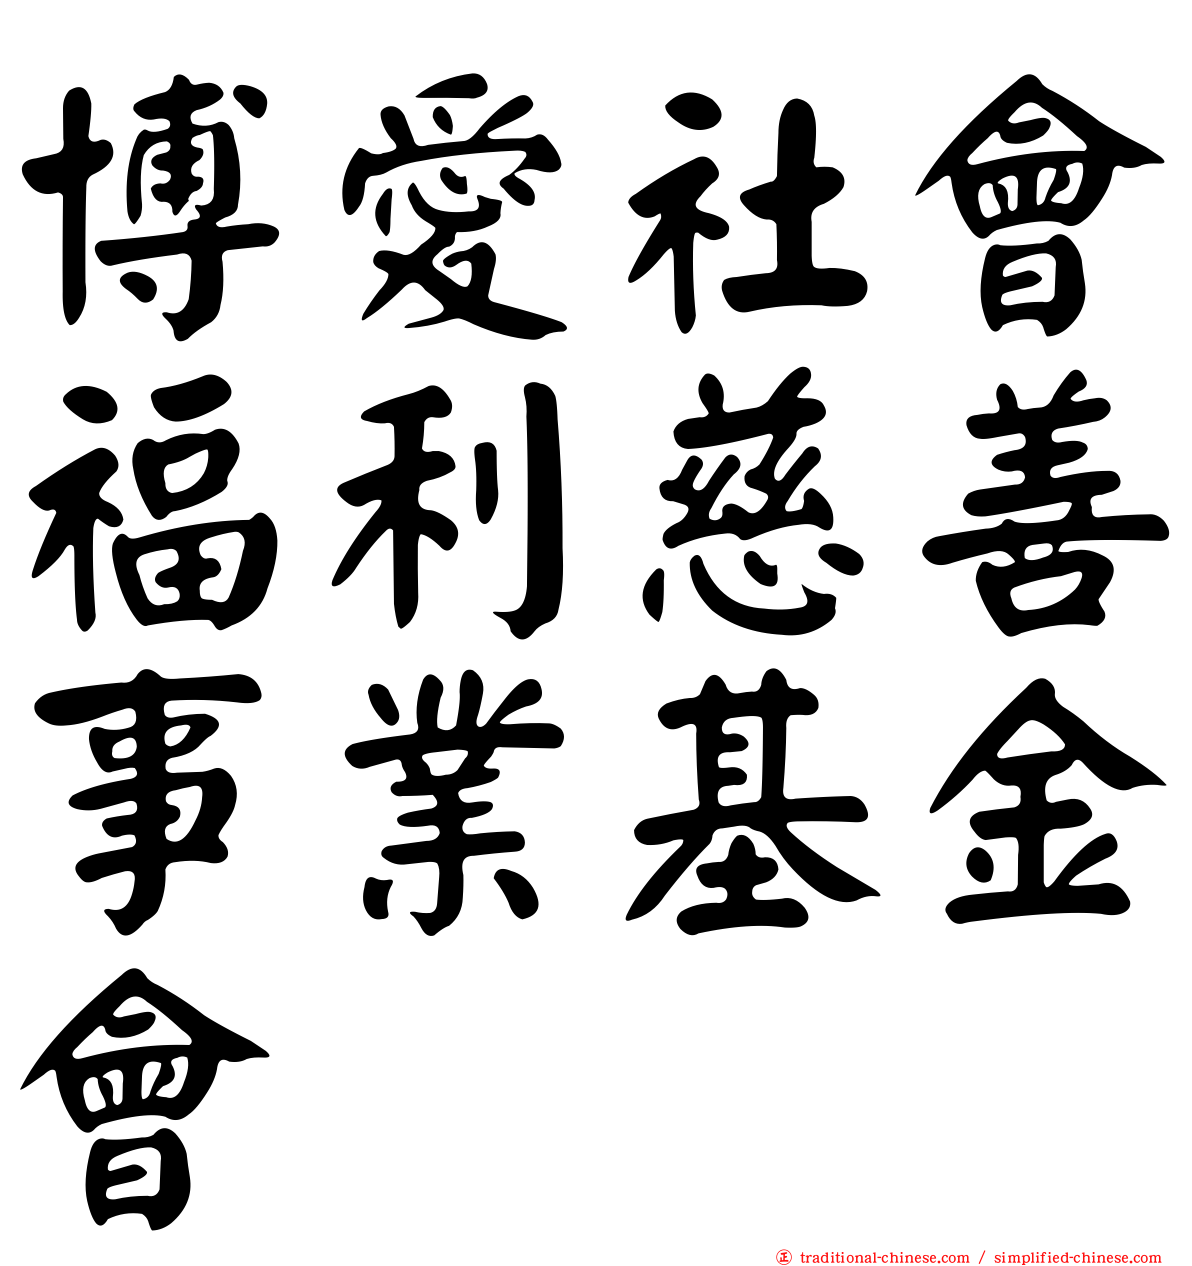 博愛社會
福利慈善
事業基金
會
㊣ traditional-chinese.com / simplified-chinese.com